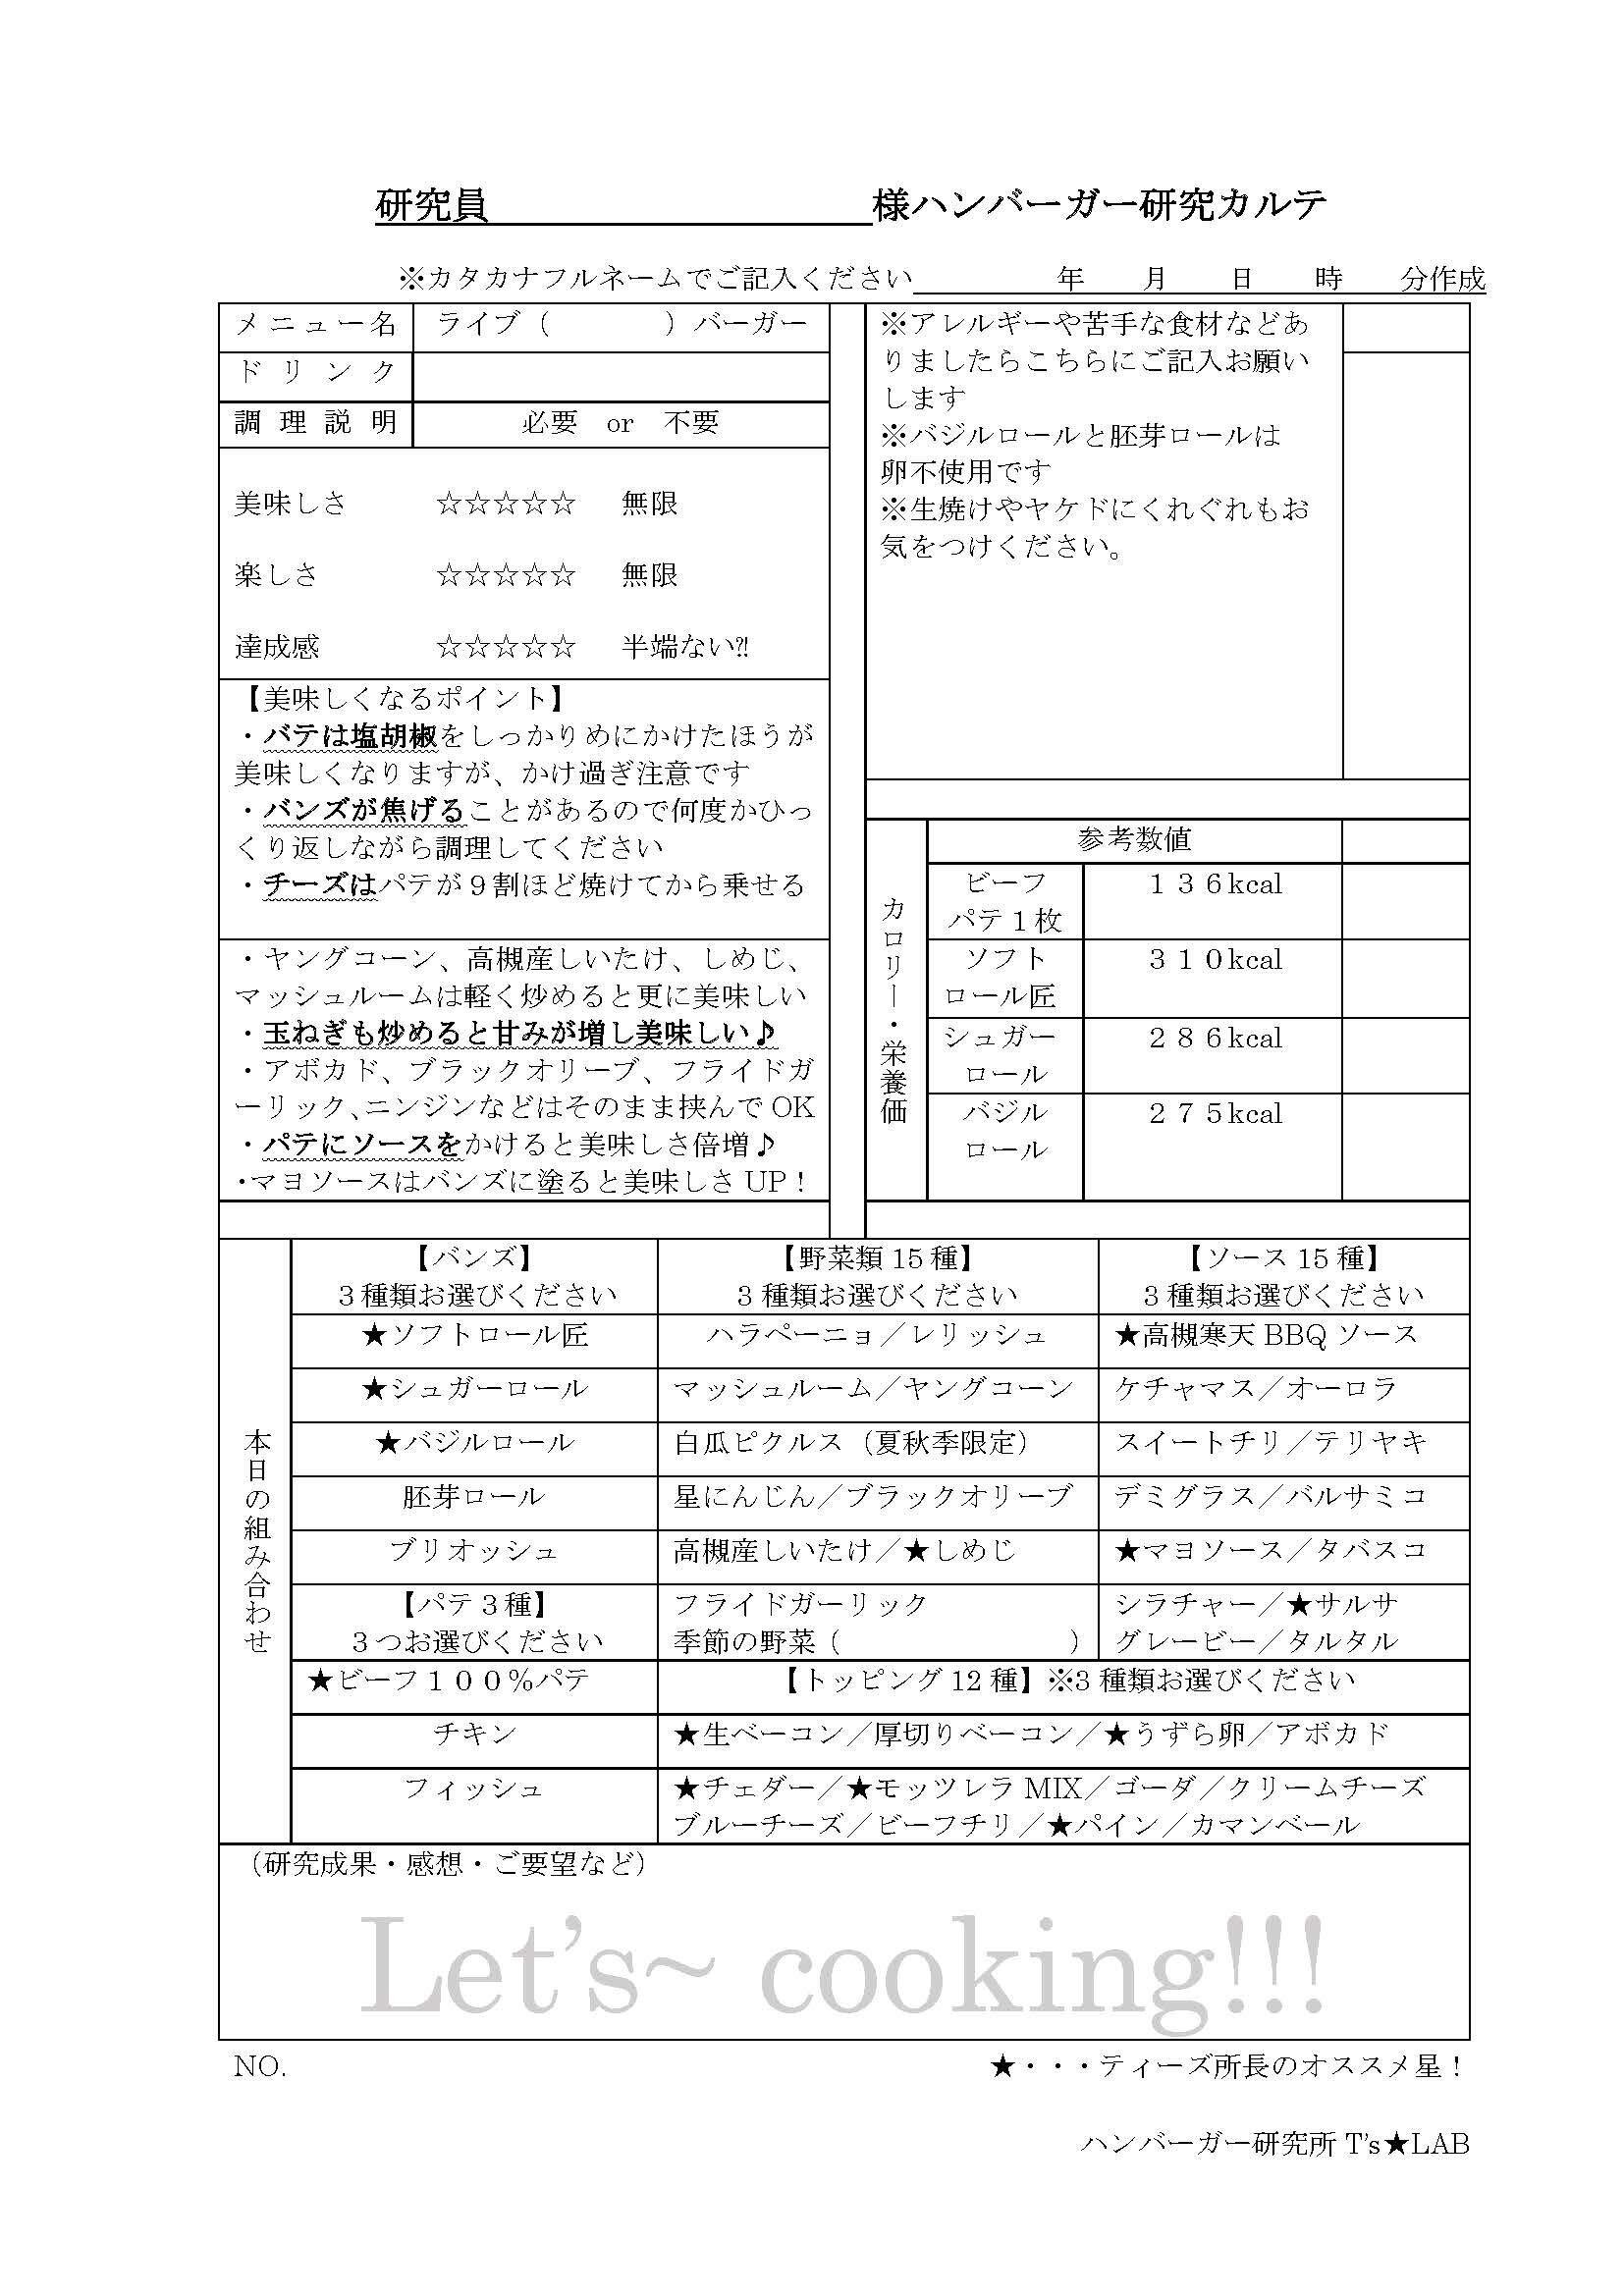 研究員　　　　　　　　　　様ハンバーガー研究カルテ
※カタカナフルネームでご記入ください　　　　　年　　月　　日　　時　　分作成
メニュー名　ライブ（　　　　）バーガー
ドリンク
調理説明　必要　or　不要
美味しさ　☆☆☆☆☆　無限
楽しさ　☆☆☆☆☆　無限
達成感　☆☆☆☆☆　半端ない⁈
【美味しくなるポイント】
・バテは塩胡椒をしっかりめにかけたほうが
美味しくなりますが、かけ過ぎ注意です
・バンズが焦げることがあるので何度かひっ
くり返しながら調理してください
・チーズはパテが９割ほど焼けてから乗せる
・ヤングコーン、高槻産しいたけ、しめじ、
マッシュルームは軽く炒めると更に美味しい
・玉ねぎも炒めると甘みが増し美味しい♪
・アボカド、ブラックオリーブ、フライドガ
ーリック、ニンジンなどはそのまま挟んで OK
・パテにソースをかけると美味しさ倍増♪
・マヨソースはバンズに塗ると美味しさ UP！
※アレルギーや苦手な食材などあ
りましたらこちらにご記入お願い
します
※バジルロールと胚芽ロールは
卵不使用です
※生焼けやヤケドにくれぐれもお
気をつけください。
カロリー・栄養価
参考数値
ビーフ　１３６kcal
パテ１枚
ソフト　３１０kcal
ロール匠
シュガー　２８６kcal
ロール
バジル　２７５kcal
ロール
本日の組み合わせ
【バンズ】　【野菜類 15 種】　【ソース 15 種】
３種類お選びください　３種類お選びください　３種類お選びください
★ソフトロール匠　ハラペーニョ／レリッシュ　★高槻寒天 BBQ ソース
★シュガーロール　マッシュルーム／ヤングコーン　ケチャマス／オーロラ
★バジルロール　白瓜ピクルス（夏秋季限定）　スイートチリ／テリヤキ
胚芽ロール　星にんじん／ブラックオリーブ　デミグラス／バルサミコ
ブリオッシュ　高槻産しいたけ／★しめじ　★マヨソース／タバスコ
【パテ３種】　フライドガーリック　シラチャー／★サルサ
３つお選びください　季節の野菜（　　　　　　　　）　グレービー／タルタル
★ビーフ１００％パテ　【トッピング 12 種】※3 種類お選びください
チキン　★生ベーコン／厚切りベーコン／★うずら卵／アボカド
フィッシュ　★チェダー／★モッツレラ MIX／ゴーダ／クリームチーズ
ブルーチーズ／ビーフチリ／★パイン／カマンベール
（研究成果・感想・ご要望など）
Let's~ cooking!!!
NO.　★・・・ティーズ所長のオススメ星！
ハンバーガー研究所 T's★LAB